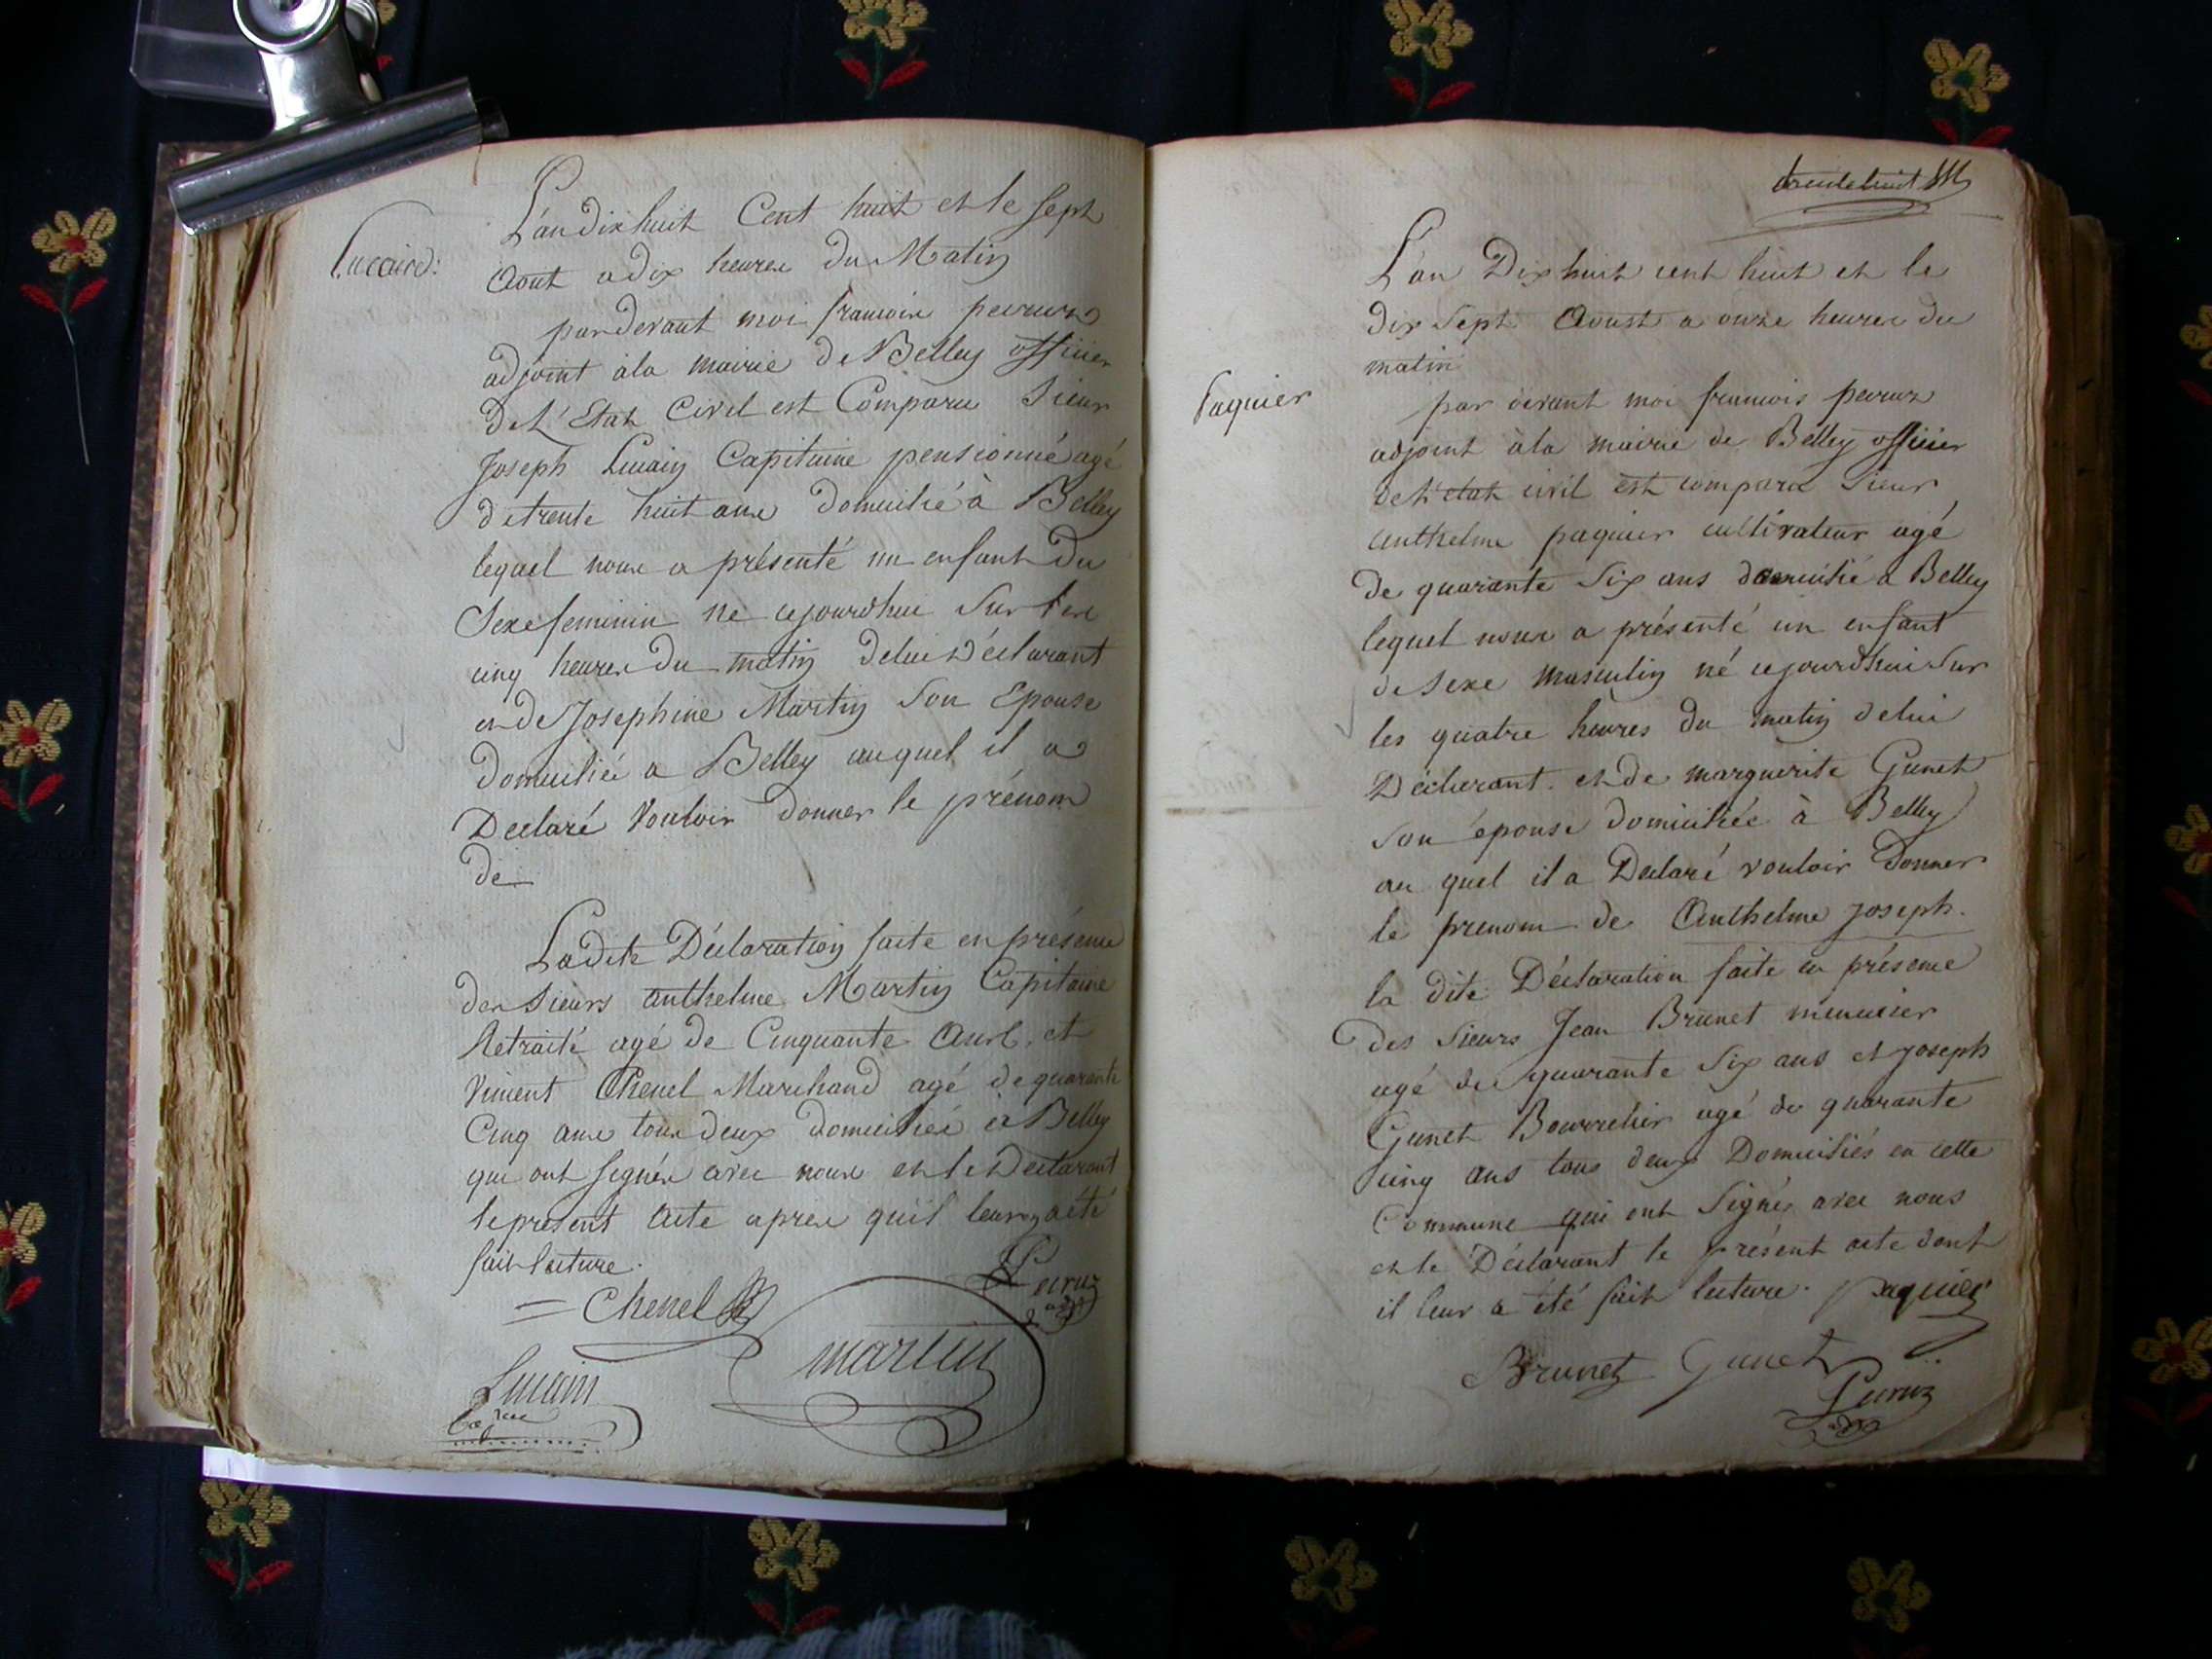 L'an dix huit Cent huit et le sept
Aout a dix heures du Matin
par devant moi francois peuruz
adjoint à la mairie de Belley officier
de L'Etat Civil est Comparu Sieur
Joseph Lucain Capitaine pensionné agé
de trente huit ans domicilié à Belley
lequel nous a présenté un enfant du
Sexe feminin né cejourdhui sur les
cinq heures du matin de lui Déclarant
et de Josephine Martin Son Epouse
domiciliée a Belley auquel il a
Declaré Vouloir donner le prénom
de
La dite Déclaration faite en présence
des Sieurs anthelme Martin Capitaine
Retraité agé de Cinquante Ans. et
Vincent Chenel Marchand agé de quarante
Cinq ans tous deux domiciliés à Belley
qui ont signés avec nous et le Declarant
le present acte apres qu'il leur y a été
fait lecture.
Chenel
Lucain
martin
trente huit
Paquier
L'an Dix huit cent huit et le
dix sept Aoust a onze heures du
matin
par devant moi francois peuruz
adjoint à la mairie de Belley officier
de l'etat civil est comparu Sieur
anthelme paquier cultivateur agé
de quarante Six ans domicilié a Belley
lequel nous a présenté un enfant
de Sexe masculin né cejourdhui sur
les quatre heures du matin de lui
Déclarant. et de marguerite Gunet
Son épouse domiciliée à Belley
au quel il a Declaré vouloir donner
le prenom de Anthelme joseph.
la dite Déclaration faite en présence
des Sieurs Jean Brunet menuisier
agé de quarante Six ans et joseph
Gunet Bourrelier agé de quarante
cinq ans tous deux Domiciliés en cette
Commune qui ont Signés avec nous
et le Déclarant le présent acte dont
il leur a été fait lecture. paquier
Brunet Gunet